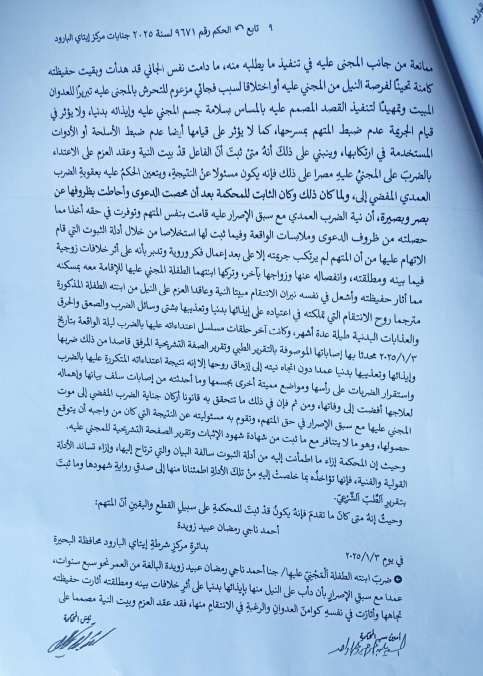 ٩ تابع الحكم رقم ٩٦٧١ لسنة ٢٠٢٥ جنايات مركز إيتاي البارود
ممانعة من جانب المجنى عليه في تنفيذ ما يطلبه منه، ما دامت نفس الجاني قد هدأت وبقيت حفيظته
كامنة تحينًا لفرصة النيل من المجني عليه أو اختلاقا لسبب فجائي مزعوم للتحرش بالمجنى عليه تبريرًا للعدوان
المبيت وتمهيدًا لتنفيذ القصد المصمم عليه بالمساس بسلامة جسم المجني عليه وإيذائه بدنيا، ولا يؤثر في
قيام الجريمة عدم ضبط المتهم بمسرحها، كما لا يؤثر على قيامها أيضا عدم ضبط الأسلحة أو الأدوات
المستخدمة في ارتكابها، وينبني على ذلك أنه متى ثبت أنّ الفاعل قد بيت النية وعقد العزم على الاعتداء
بالضرب على المجنيُّ عليهِ مصرا على ذلك فإنه يكون مسئولا عن النتيجةِ، ويتعين الحكم عليه بعقوبة الضرب
العمدي المفضي إلى، ولما كان ذلك وكان الثابت للمحكمة بعد أن محصت الدعوى وأحاطت بظروفها عن
بصر وبصيرة، أن نية الضرب العمدي مع سبق الإصرار عليه قامت بنفس المتهم وتوفرت في حقه أخذا مما
حصلته من ظروف الدعوى وملابسات الواقعة وفيما ثبت لها استخلاصا من خلال أدلة الثبوت التي قام
الاتهام عليها من أن المتهم لم يرتكب جريمته إلا بعد إعمال فكر وروية وتدبر بأنه على أثر خلافات زوجية
فيما بينه ومطلقته، وانفصاله عنها وزواجها بآخر، وتركها ابنتهما الطفلة المجني عليها للإقامة معه بمسكنه
مما أثار حفيظته وأشعل في نفسه نيران الانتقام مبيتا النية وعاقدا العزم على النيل من ابنته الطفلة المذكورة
مترجما روح الانتقام التي تملكته في اعتياده على إيذائها بدنيا وتعذيبها بشتى وسائل الضرب والصعق والحرق
والعذابات البدنية طيلة عدة أشهر، وكانت آخر حلقات مسلسل اعتداءاته عليها بالضرب ليلة الواقعة بتاريخ
٢٠٢٥/١/٣ محدثا بها إصاباتها الموصوفة بالتقرير الطبي وتقرير الصفة التشريحية المرفق قاصدا من ذلك ضربها
وإيذائها وتعذيبها بدنيا عمدا دون اتجاه نيته إلى إزهاق روحها إلا إنه نتيجة اعتداءاته المتكررة عليها بالضرب
واستقرار الضربات على رأسها ومواضع مميتة أخرى بجسمها وما أحدثته من إصابات سلف بيانها وإهماله
لعلاجها أفضت إلى وفاتها، ومن ثم فإن في ذلك ما تتحقق به قانونا أركان جناية الضرب المفضى إلى موت
المجني عليها مع سبق الإصرار في حق المتهم، وتقوم به مسئوليته عن النتيجة التي كان من واجبه أن يتوقع
حصولها، وهو ما لا يتنافر مع ما ثبت من شهادة شهود الإثبات وتقرير الصفحة التشريحية للمجني عليه.
وحيث إن المحكمة إزاء ما اطمأنت إليه من أدلة الثبوت سالفة البيان والتي ترتاح إليها، وإزاء تساند الأدلة
القولية والفنية، فإنها تؤاخذُه بما خلصتْ إليهِ منْ تلكَ الأدلةِ اطمئنانا منها إلى صدقِ روايةِ شهودها وما ثبتَ
بتقريرِ الطِّبِّ الشَّرعِيِّ.
وحيثُ إنهُ متى كانَ ما تقدمَ فإنهُ يكونُ قدْ ثبتَ للمحكمةِ على سبيلِ القطعِ واليقينِ أنَّ المتهم:
أحمد ناجي رمضان عبيد زويدة
في يوم ٢٠٢٥/١/٣ بدائرةِ مركزِ شرطةِ إيتاي البارود محافظة البحيرة
ضربَ ابنته الطفلة المَجْنِيَّ عليها/ جنا أحمد ناجي رمضان عبيد زويدة البالغة من العمر نحو سبع سنوات،
عمدا مع سبقِ الإصرارِ بأن دأب على النيل منها بإيذائها بدنيا على أثر خلافات بينه ومطلقته أثارت حفيظته
تجاهها وأثارَتْ في نفسِهِ كوامنَ العدوانِ والرغبةِ في الانتقامِ منها، فقد عقد العزم وبيت النية مصمما على
أمين سر المحكمة
رئيس المحكمة